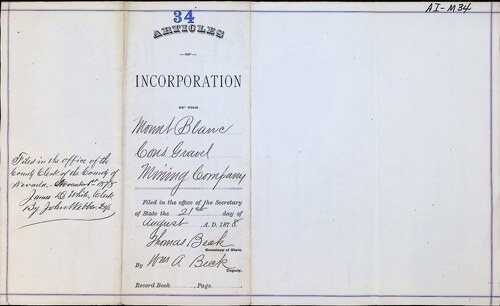 AI-M34
34
ARTICLES
OF
INCORPORATION
OF THE
Mount Blanc
Cons Gravel
Mining Company
Filed in the office of the Secretary
of State the 21st day of
August A.D. 1878
Thomas Beck
Secretary of State.
By Wm A. Beck
Deputy.
Record Book Page
Filed in the office of the
County Clerk of the County of
Nevada, November 1st 1878
James D White, Clerk
By John Webber, Dep